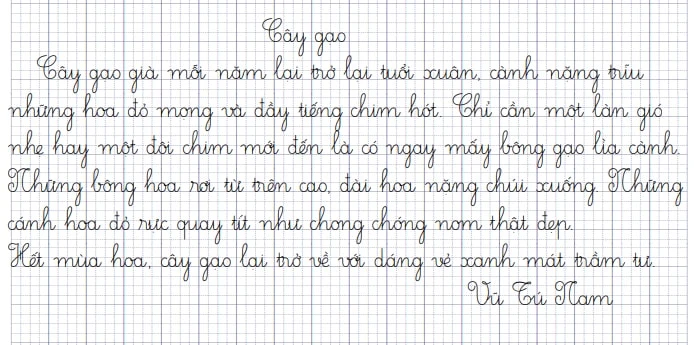 Cây gạo
Cây gạo già mỗi năm lại trở lại tuổi xuân, cành nặng trĩu
những hoa đỏ mọng và đầy tiếng chim hót. Chỉ cần một làn gió
nhẹ hay một đôi chim mới đến là có ngay mấy bông gạo lìa cành.
Những bông hoa rơi từ trên cao, đài hoa nặng chúi xuống. Những
cánh hoa đỏ rực quay tít như chong chóng nom thật đẹp.
Hết mùa hoa, cây gạo lại trở về với dáng vẻ xanh mát trầm tư.
Vũ Tú Nam